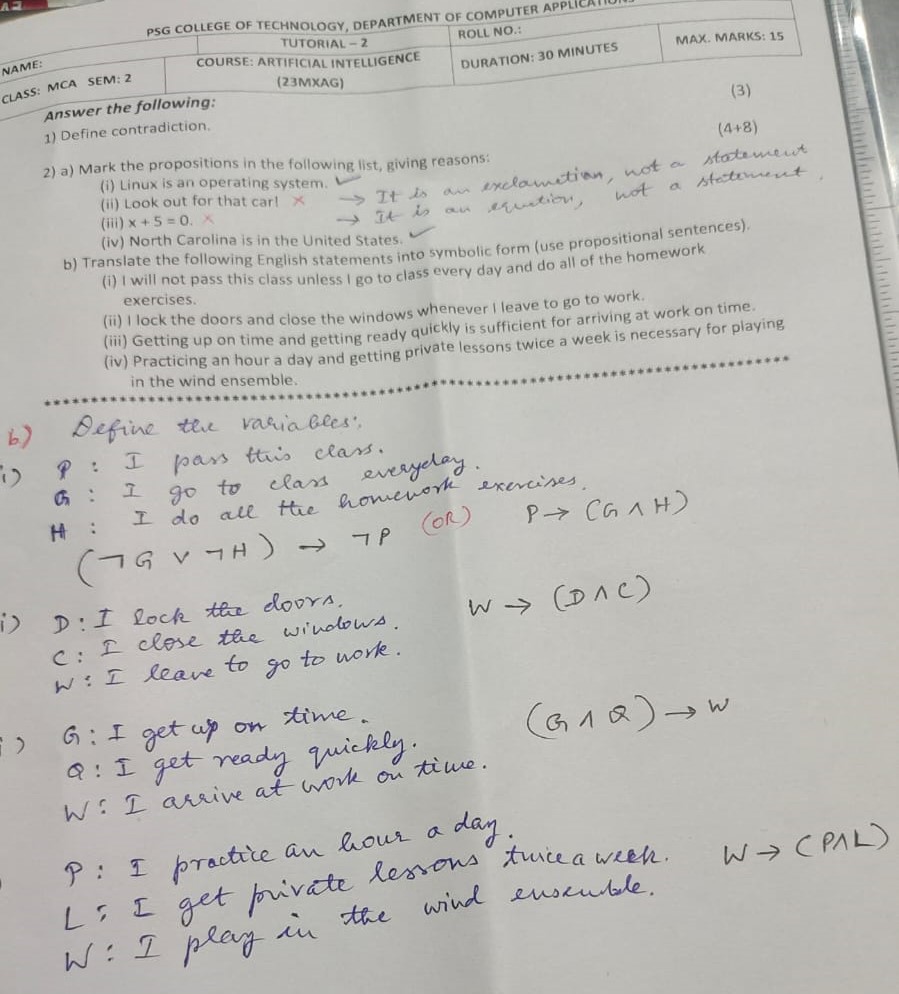 PSG COLLEGE OF TECHNOLOGY, DEPARTMENT OF COMPUTER APPLICATIONS
NAME:
TUTORIAL – 2
ROLL NO.:
CLASS: MCA SEM: 2
COURSE: ARTIFICIAL INTELLIGENCE
(23MXAG)
DURATION: 30 MINUTES
MAX. MARKS: 15
Answer the following:
1) Define contradiction. (3)
2) a) Mark the propositions in the following list, giving reasons: (4+8)
(i) Linux is an operating system. ✓
(ii) Look out for that car! ✗ → It is an exclamation, not a statement
(iii) x + 5 = 0. ✗ → It is an equation, not a statement.
(iv) North Carolina is in the United States. ✓
b) Translate the following English statements into symbolic form (use propositional sentences).
(i) I will not pass this class unless I go to class every day and do all of the homework
exercises.
(ii) I lock the doors and close the windows whenever I leave to go to work.
(iii) Getting up on time and getting ready quickly is sufficient for arriving at work on time.
(iv) Practicing an hour a day and getting private lessons twice a week is necessary for playing
in the wind ensemble.
b) Define the variables:
i) P : I pass this class.
G : I go to class everyday.
H : I do all the homework exercises.
(¬G ∨ ¬H) → ¬P (OR) P → (G ∧ H)
i) D : I lock the doors.
C : I close the windows. W → (D ∧ C)
W : I leave to go to work.
i) G : I get up on time.
Q : I get ready quickly. (G ∧ Q) → W
W : I arrive at work on time.
P : I practice an hour a day.
L : I get private lessons twice a week. W → (P ∧ L)
W : I play in the wind ensemble.